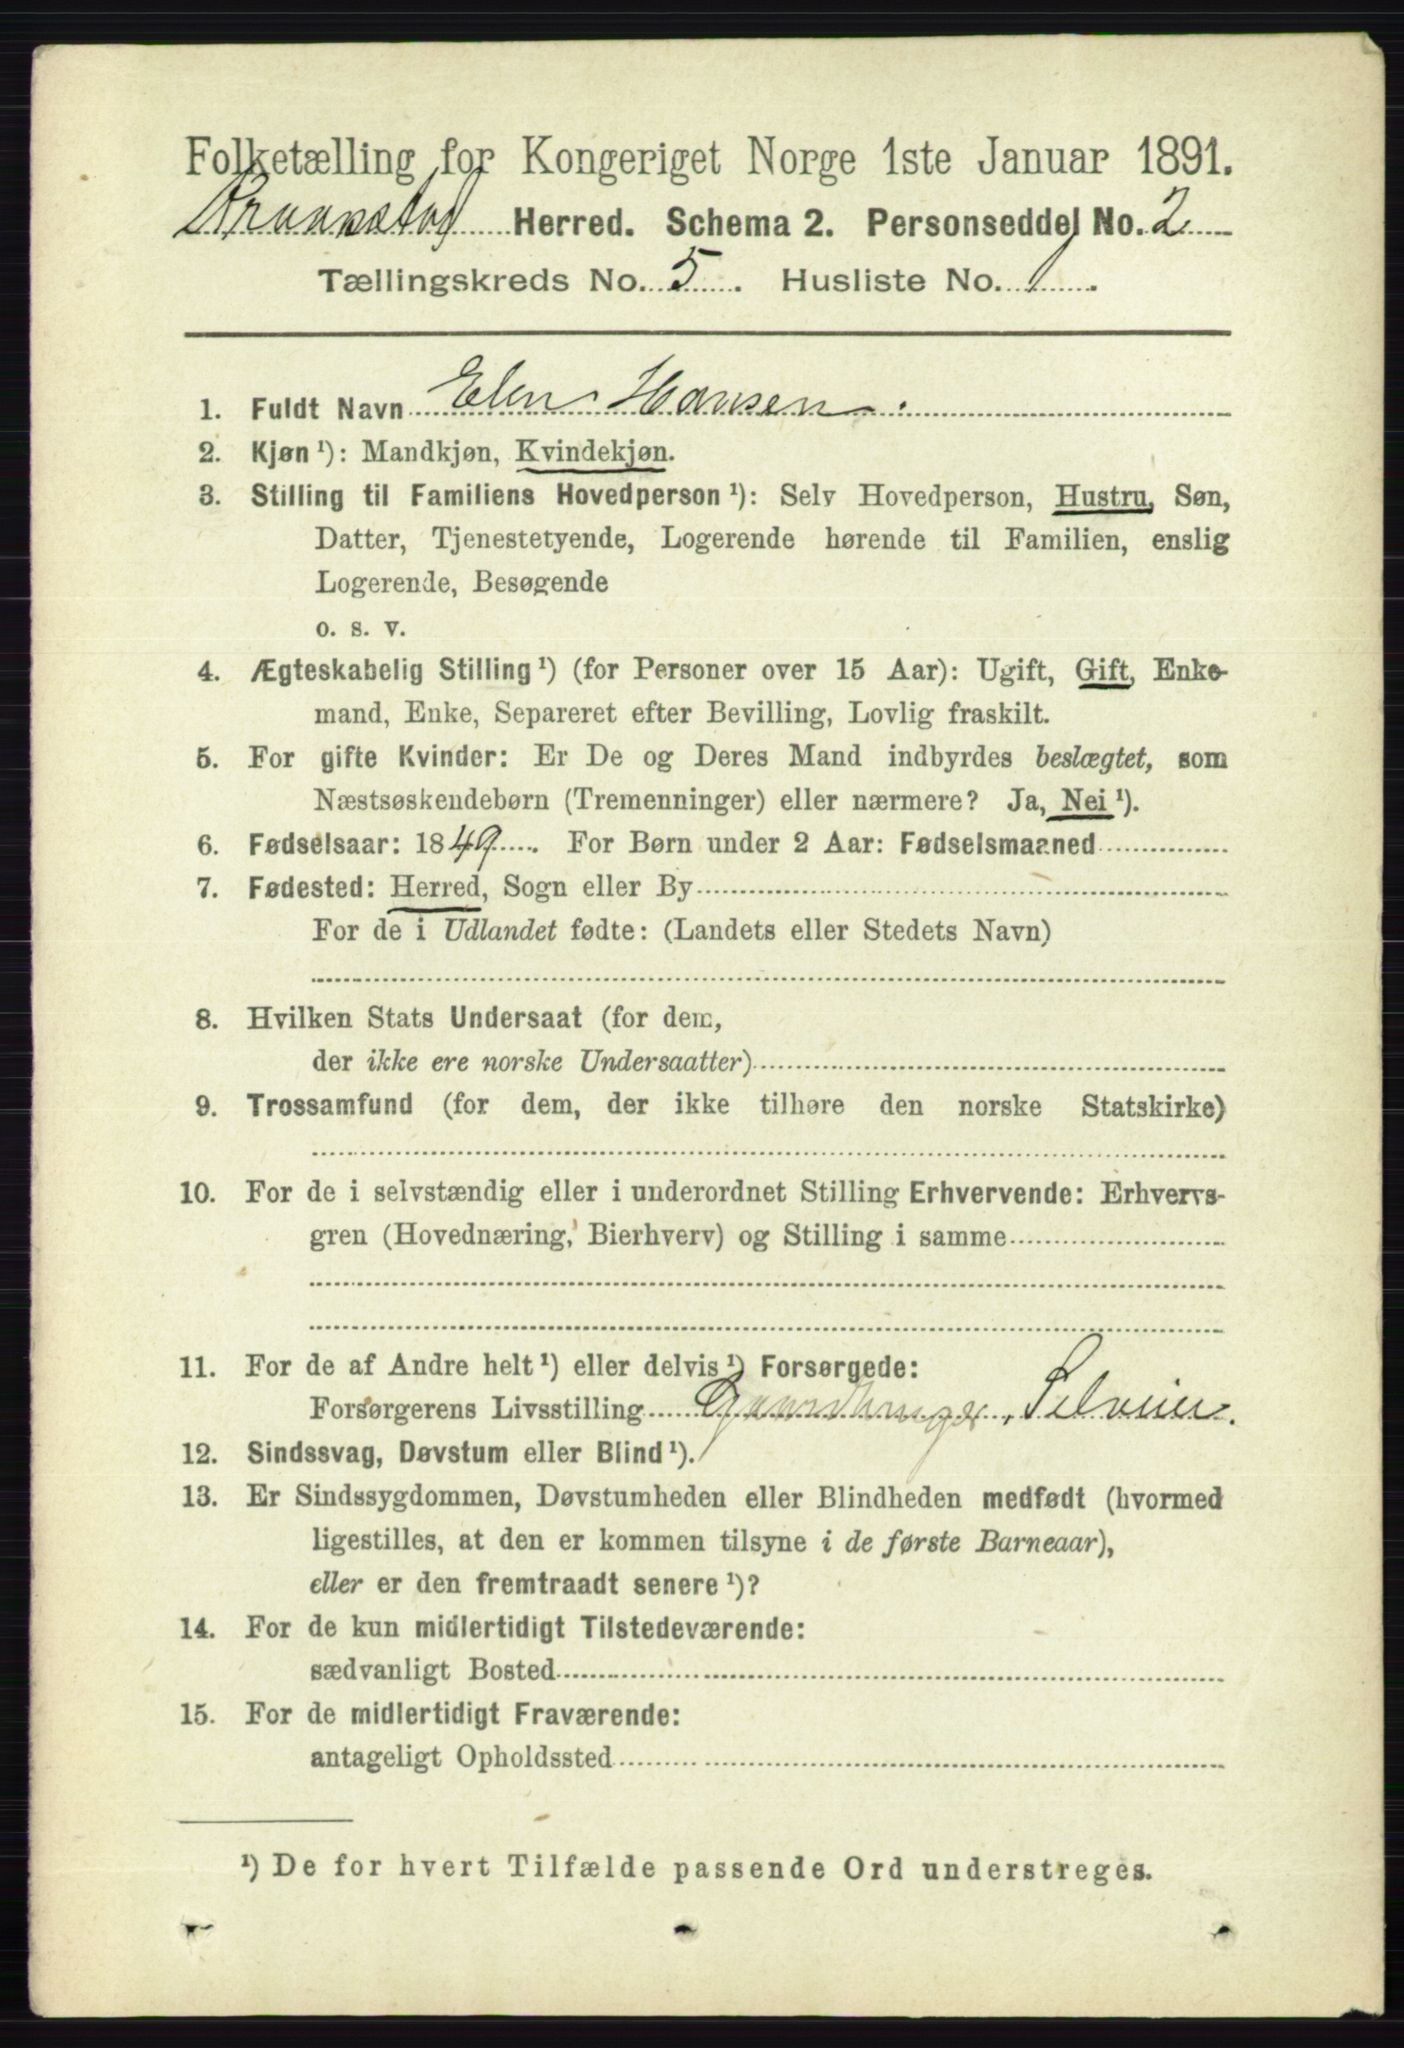 Folketælling for Kongeriget Norge 1ste Januar 1891.
Herred. Schema 2. Personseddel No. 2
Tællingskreds No. 5. Husliste No. 1.
1. Fuldt Navn Elen Hansen.
2. Kjøn ¹): Mandkjøn, Kvindekjøn.
3. Stilling til Familiens Hovedperson ¹): Selv Hovedperson, Hustru, Søn,
Datter, Tjenestetyende, Logerende hørende til Familien, enslig
Logerende, Besøgende
o. s. v.
4. Ægteskabelig Stilling ¹) (for Personer over 15 Aar): Ugift, Gift, Enke-
mand, Enke, Separeret efter Bevilling, Lovlig fraskilt.
5. For gifte Kvinder: Er De og Deres Mand indbyrdes beslægtet, som
Næstsøskendebørn (Tremenninger) eller nærmere? Ja, Nei ¹).
6. Fødselsaar: 1849. For Børn under 2 Aar: Fødselsmaaned
7. Fødested: Herred, Sogn eller By
For de i Udlandet fødte: (Landets eller Stedets Navn)
8. Hvilken Stats Undersaat (for dem,
der ikke ere norske Undersaatter)
9. Trossamfund (for dem, der ikke tilhøre den norske Statskirke)
10. For de i selvstændig eller i underordnet Stilling Erhvervende: Erhvervs-
gren (Hovednæring, Bierhverv) og Stilling i samme
11. For de af Andre helt ¹) eller delvis ¹) Forsørgede:
Forsørgerens Livsstilling Gaardbruger, Selveier.
12. Sindssvag, Døvstum eller Blind ¹).
13. Er Sindssygdommen, Døvstumheden eller Blindheden medfødt (hvormed
ligestilles, at den er kommen tilsyne i de første Barneaar),
eller er den fremtraadt senere ¹)?
14. For de kun midlertidigt Tilstedeværende:
sædvanligt Bosted
15. For de midlertidigt Fraværende:
antageligt Opholdssted
¹) De for hvert Tilfælde passende Ord understreges.